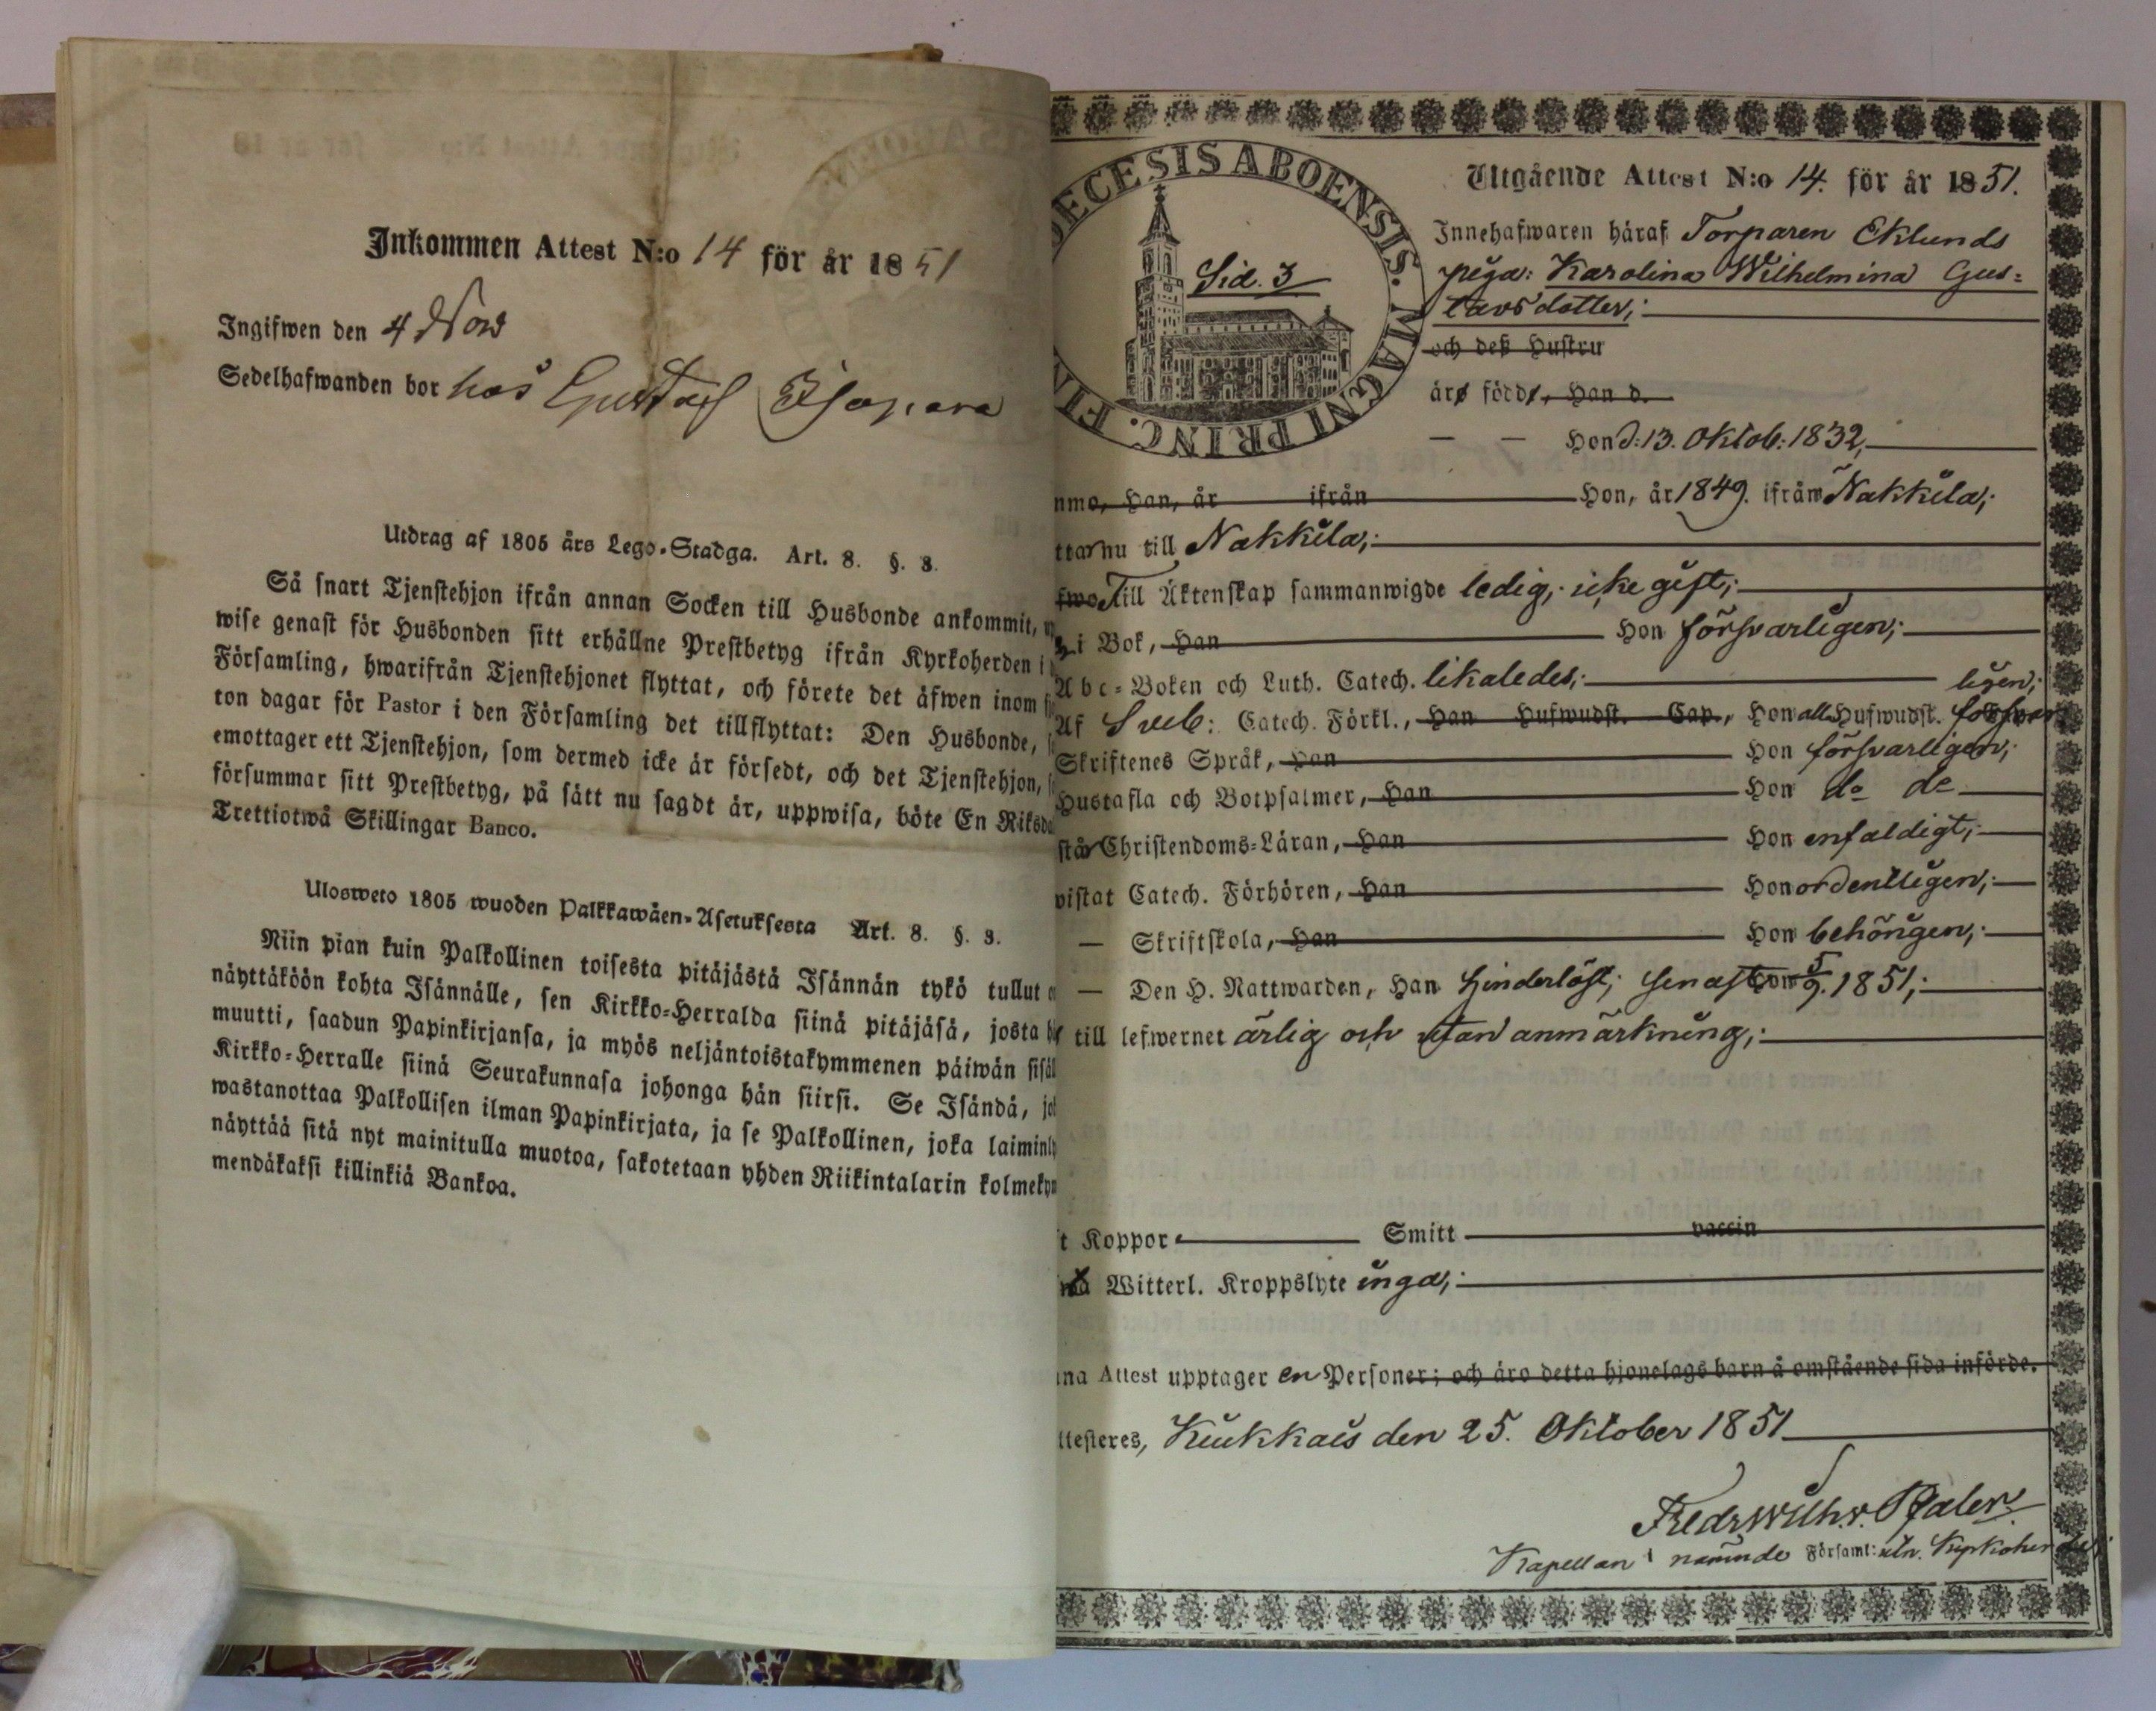 Inkommen Attest N:o 14 för år 1851
Ingifwen den 4 Nov
Sedelhafwanden bor hos Gustaf
Utdrag af 1805 års Lego-Stadga. Art. 8. §. 3.
Så snart Tjenstehjon ifrån annan Socken till Husbonde ankommit,
wise genast för Husbonden sitt erhållne Prestbetyg ifrån Kyrkoherden i
Församling, hwarifrån Tjenstehjonet flyttat, och förete det äfwen inom
ton dagar för Pastor i den Församling det tillflyttat: Den Husbonde,
emottager ett Tjenstehjon, som dermed icke är försedt, och det Tjenstehjon,
försummar sitt Prestbetyg, på sätt nu sagdt är, uppwisa, böte En Riksda
Trettiotwå Skillingar Banco.
Ulosweto 1805 wuoden Palkkawäen-Asetuksesta Art. 8. §. 3.
Niin pian kuin Palkollinen toisesta pitäjästä Isännän tykö tullut
näyttäköön kohta Isännälle, sen Kirkko-Herralda siinä pitäjäsä, josta
muutti, saadun Papinkirjansa, ja myös neljäntoistakymmenen päiwän sisäl
Kirkko-Herralle siinä Seurakunnasa johonga hän siirsi. Se Isändä, jo
wastanottaa Palkollisen ilman Papinkirjata, ja se Palkollinen, joka laiminly
näyttää sitä nyt mainitulla muotoa, sakotetaan yhden Riikintalarin kolmeky
mendäkaksi killinkiä Bankoa.
ŒCESIS ABOENSIS. MAGNI PRINC. FIN
Sid. 3
Utgående Attest N:o 14. för år 1851.
Innehafwaren häraf Torparen Eklunds
piga: Karolina Wilhelmina Gus=
tavsdotter;
och deß Hustru
äro födde, Han d.
— — Hon d: 13. Oktob: 1832,
nmo, Han, år ifrån Hon, år 1849. ifrån Nakkila;
ttar nu till Nakkila;
Till Äktenskap sammanwigde ledig, icke gift;
i Bok, Han Hon försvarligen;
Abc-Boken och Luth. Catech. likaledes;
ligen;
Af Sveb: Catech. Förkl., Han Hufwudst. Cap., Hon alla Hufwudst. försvar
Skriftenes Språk, Han Hon försvarligen;
Hustafla och Botpsalmer, Han Hon do do
står Christendoms-Läran, Han Hon enfaldigt;
vistat Catech. Förhören, Han Hon ordentligen;
— Skriftskola, Han Hon behörigen;
— Den H. Nattwarden, Han hinderlöst; senast Hon 5/9. 1851;
till lefwernet ärlig och utan anmärkning;
t Koppor Smitt vaccin
Witterl. Kroppslyte inga;
na Attest upptager en Personer; och äro detta hjonelags barn å omstående sida införde.
ttesteres, Kiukkais den 25. Oktober 1851
Fredr. Wilh. v. Pfaler.
Kapellan i nämnde Församl: